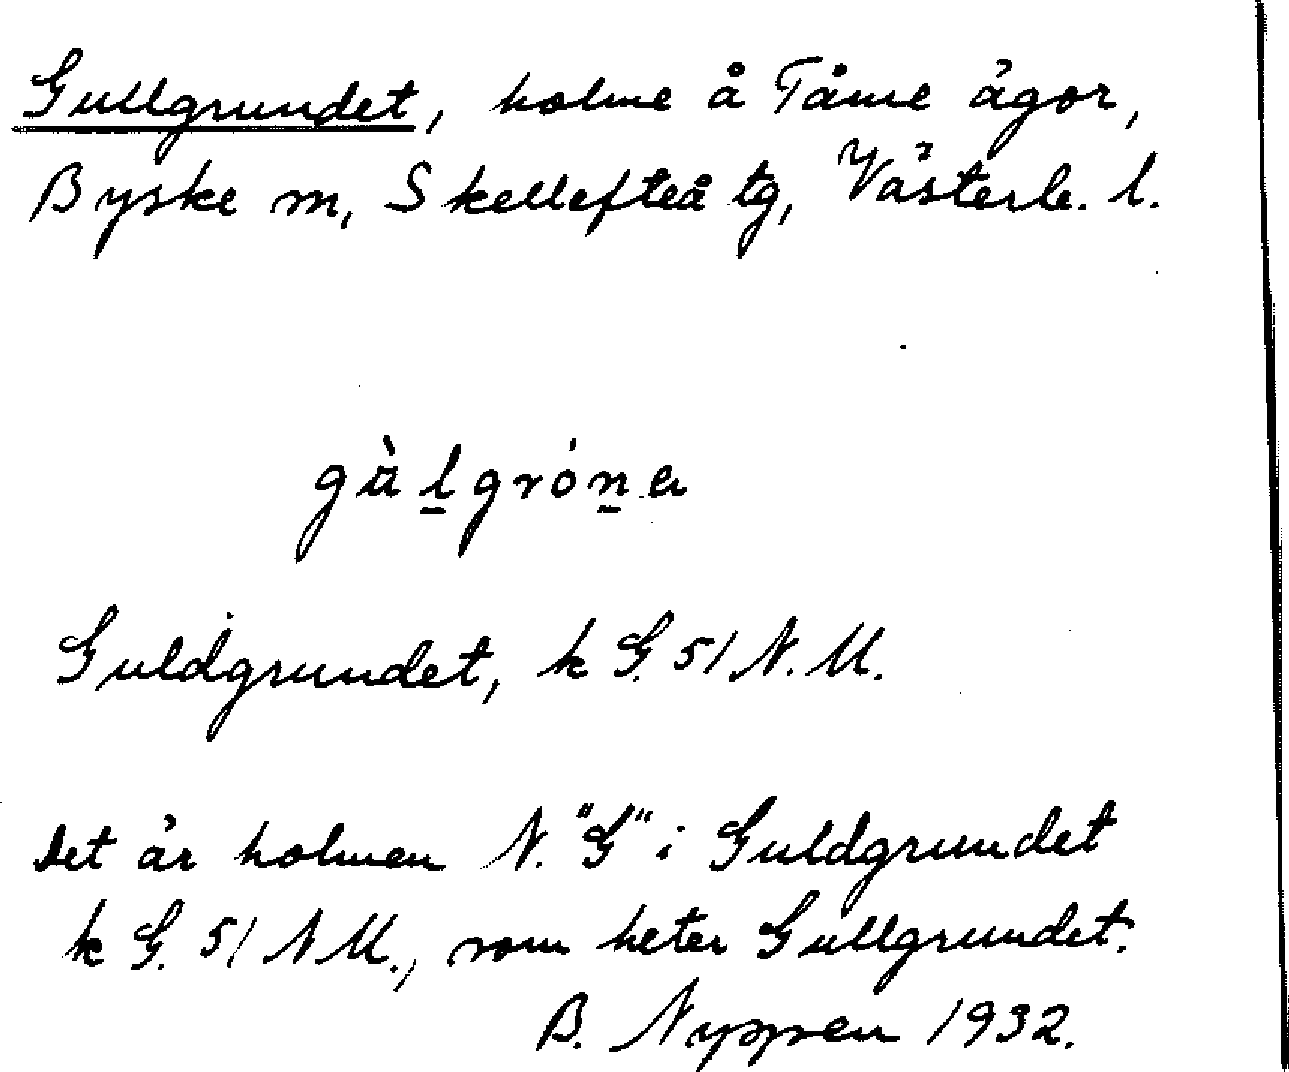 Gullgrundet, holme å Tåme ägor,
Byske sn, Skellefteå tg, Västerb. l.
gàlgróna
Guldgrundet, k G. 51 N. U.
Det är holmen N. "G" i Guldgrundet
k G. 51 N U., som heter Gullgrundet.
B. Nyppen 1932.